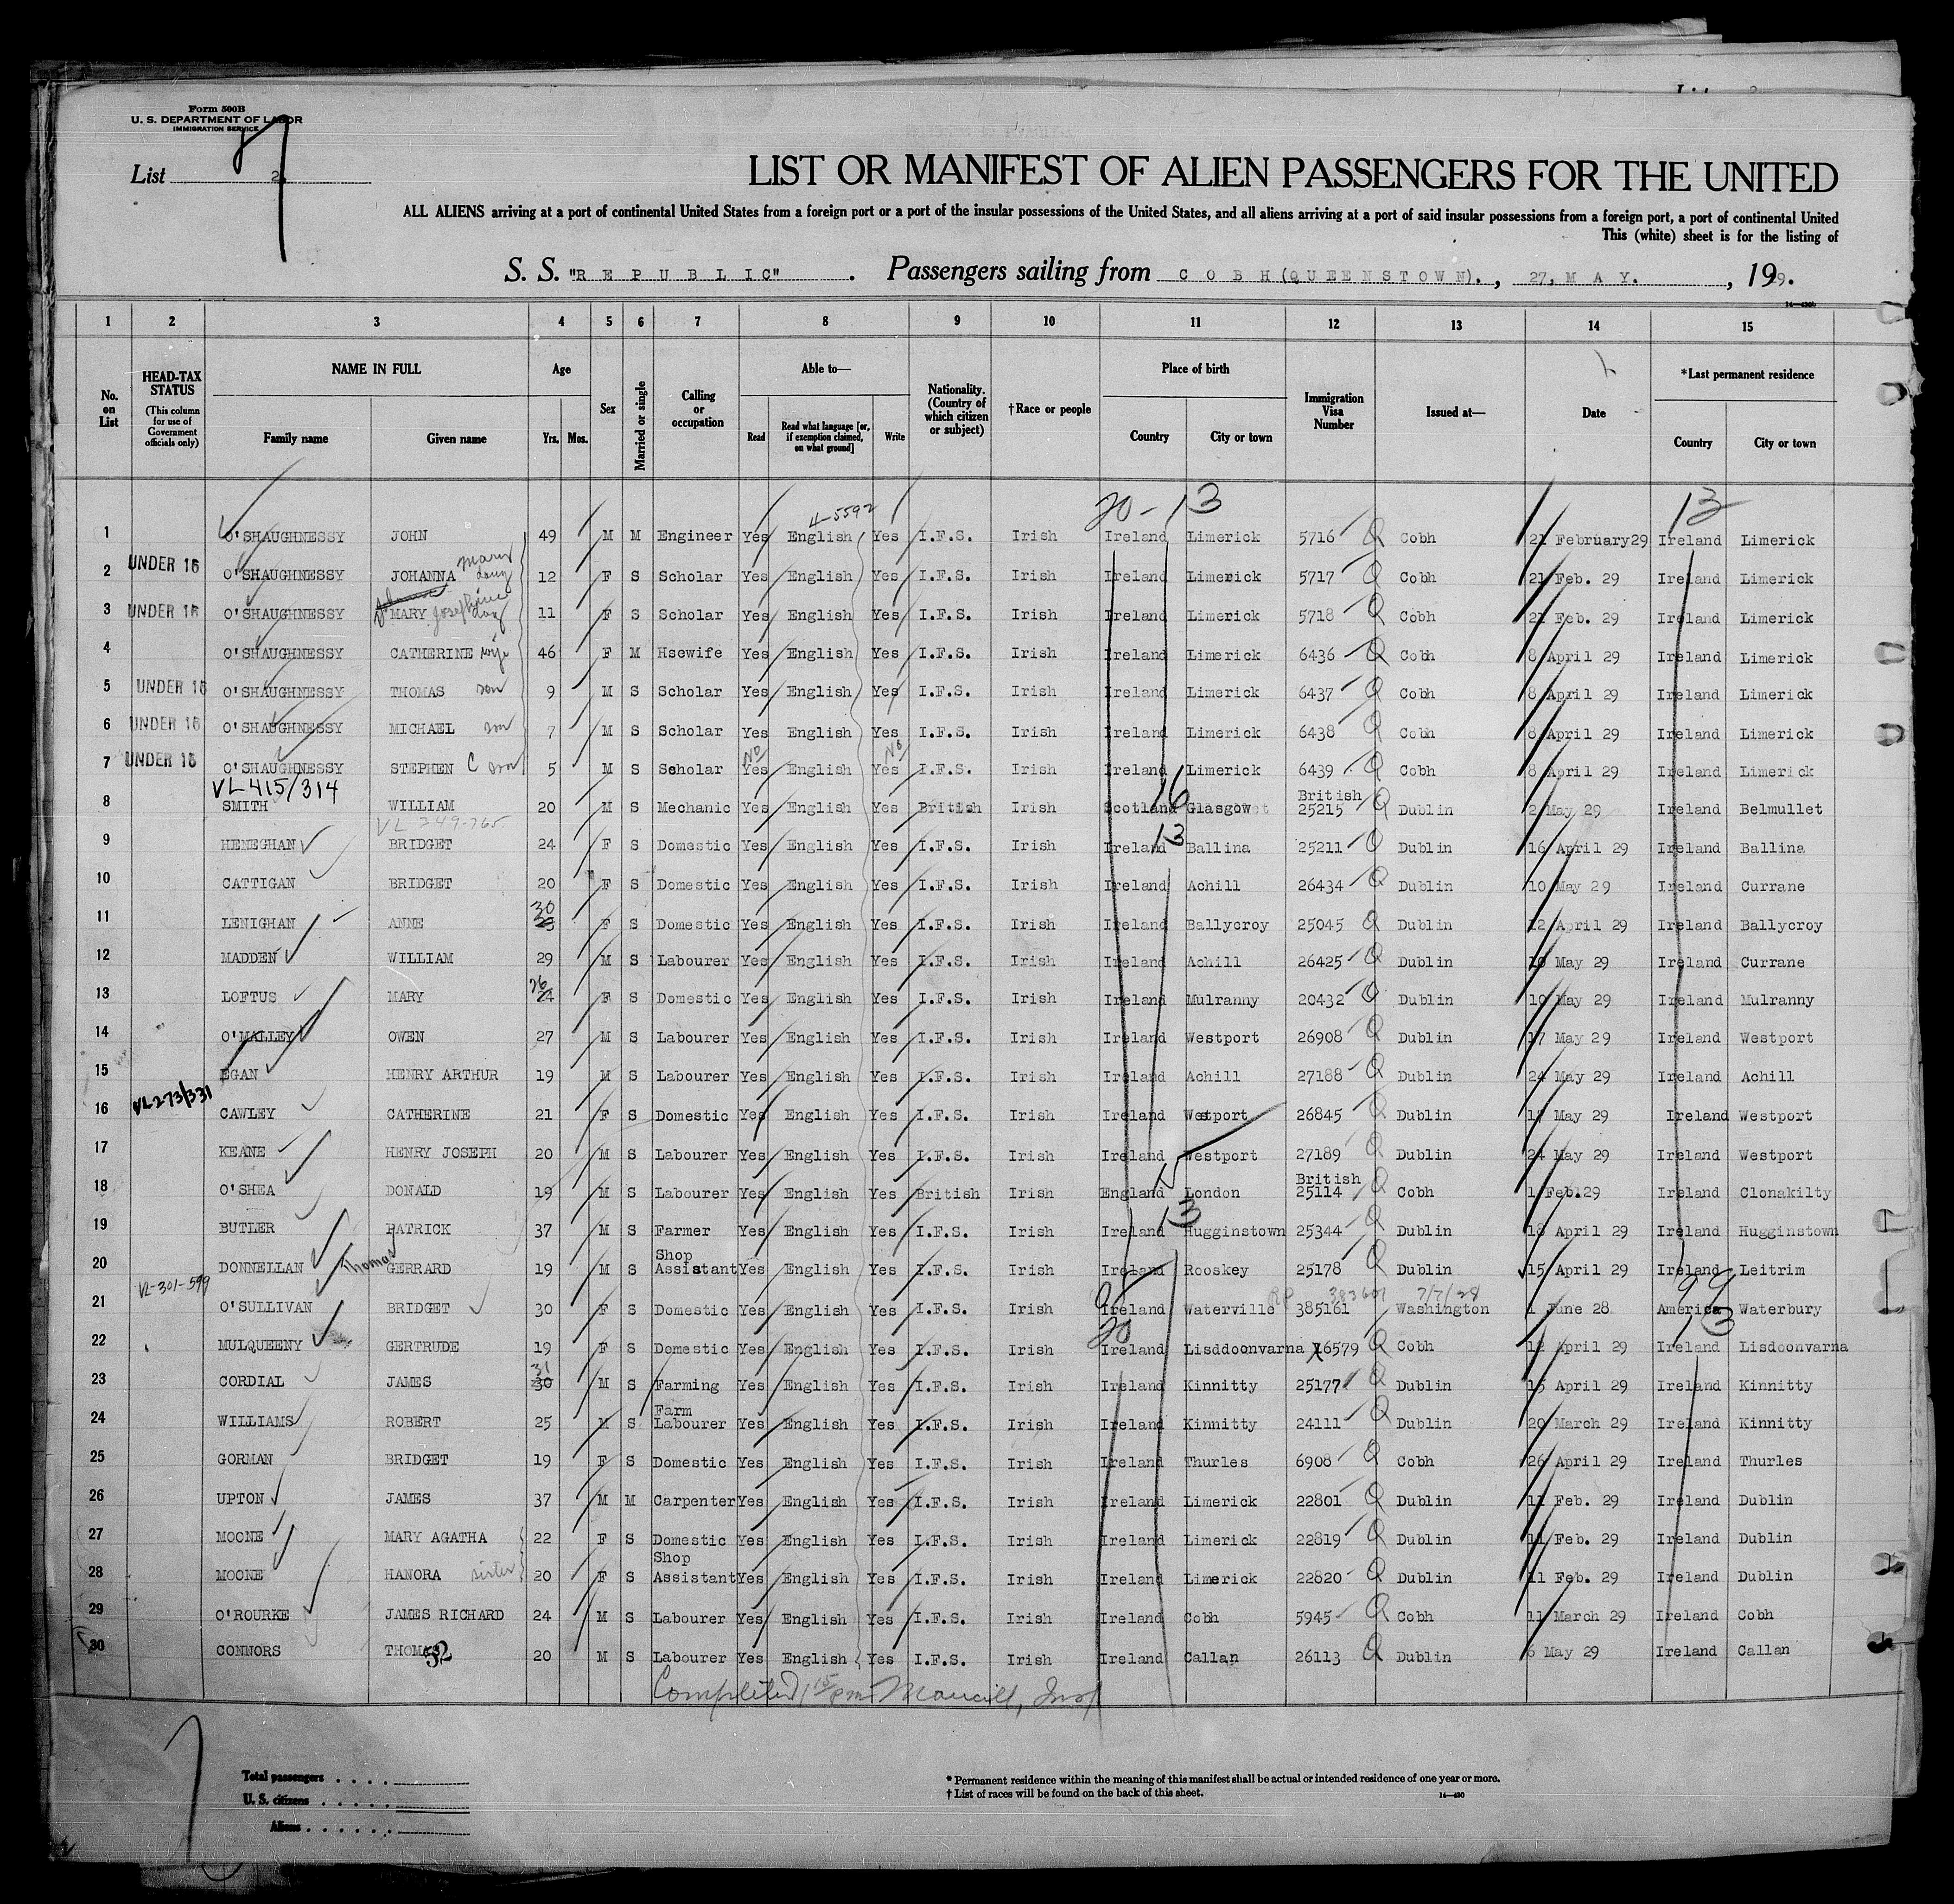 Form 500B
U. S. DEPARTMENT OF LABOR
IMMIGRATION SERVICE
List 2.
LIST OR MANIFEST OF ALIEN PASSENGERS FOR THE UNITED
ALL ALIENS arriving at a port of continental United States from a foreign port or a port of the insular possessions of the United States, and all aliens arriving at a port of said insular possessions from a foreign port, a port of continental United
This (white) sheet is for the listing of
S. S. "REPUBLIC" . Passengers sailing from COBH (QUEENSTOWN). , 27, MAY. , 1929.
1 2 3 4 5 6 7 8 9 10 11 12 13 14 15
No. on List HEAD-TAX STATUS (This column for use of Government officials only) NAME IN FULL Family name Given name Age Yrs. Mos. Sex Married or single Calling or occupation Able to— Read Read what language [or, if exemption claimed, on what ground] Write Nationality. (Country of which citizen or subject) †Race or people Place of birth Country City or town Immigration Visa Number Issued at— Date *Last permanent residence Country City or town
20-13 13
4-5592
1 O'SHAUGHNESSY JOHN 49 M M Engineer Yes English Yes I.F.S. Irish Ireland Limerick 5716 Q Cobh 21 February 29 Ireland Limerick
2 UNDER 16 O'SHAUGHNESSY JOHANNA Mary daug 12 F S Scholar Yes English Yes I.F.S. Irish Ireland Limerick 5717 Q Cobh 21 Feb. 29 Ireland Limerick
3 UNDER 16 O'SHAUGHNESSY MARY Josephine daug 11 F S Scholar Yes English Yes I.F.S. Irish Ireland Limerick 5718 Q Cobh 21 Feb. 29 Ireland Limerick
4 O'SHAUGHNESSY CATHERINE wife 46 F M Hsewife Yes English Yes I.F.S. Irish Ireland Limerick 6436 Q Cobh 8 April 29 Ireland Limerick
5 UNDER 16 O'SHAUGHNESSY THOMAS son 9 M S Scholar Yes English Yes I.F.S. Irish Ireland Limerick 6437 Q Cobh 8 April 29 Ireland Limerick
6 UNDER 16 O'SHAUGHNESSY MICHAEL son 7 M S Scholar Yes English Yes I.F.S. Irish Ireland Limerick 6438 Q Cobh 8 April 29 Ireland Limerick
7 UNDER 16 O'SHAUGHNESSY STEPHEN C son 5 M S Scholar No Yes English No Yes I.F.S. Irish Ireland Limerick 6439 Q Cobh 8 April 29 Ireland Limerick
VL415/314 16
8 SMITH WILLIAM 20 M S Mechanic Yes English Yes British Irish Scotland Glasgow British 25215 Q Dublin 2 May 29 Ireland Belmullet
VL 349-765 13
9 HENEGHAN BRIDGET 24 F S Domestic Yes English Yes I.F.S. Irish Ireland Ballina 25211 Q Dublin 16 April 29 Ireland Ballina
10 CATTIGAN BRIDGET 20 F S Domestic Yes English Yes I.F.S. Irish Ireland Achill 26434 Q Dublin 10 May 29 Ireland Currane
11 LENIGHAN ANNE 30 F S Domestic Yes English Yes I.F.S. Irish Ireland Ballycroy 25045 Q Dublin 12 April 29 Ireland Ballycroy
12 MADDEN WILLIAM 29 M S Labourer Yes English Yes I.F.S. Irish Ireland Achill 26425 Q Dublin 10 May 29 Ireland Currane
13 LOFTUS MARY 26 24 F S Domestic Yes English Yes I.F.S. Irish Ireland Mulranny 20432 Q Dublin 10 May 29 Ireland Mulranny
14 O'MALLEY OWEN 27 M S Labourer Yes English Yes I.F.S. Irish Ireland Westport 26908 Q Dublin 17 May 29 Ireland Westport
15 EGAN HENRY ARTHUR 19 M S Labourer Yes English Yes I.F.S. Irish Ireland Achill 27188 Q Dublin 24 May 29 Ireland Achill
VL273/331
16 CAWLEY CATHERINE 21 F S Domestic Yes English Yes I.F.S. Irish Ireland Westport 26845 Q Dublin 17 May 29 Ireland Westport
17 KEANE HENRY JOSEPH 20 M S Labourer Yes English Yes I.F.S. Irish Ireland Westport 27189 Q Dublin 24 May 29 Ireland Westport
15
18 O'SHEA DONALD 19 M S Labourer Yes English Yes British Irish England London British 25114 Q Cobh 1 Feb. 29 Ireland Clonakilty
13
19 BUTLER PATRICK 37 M S Farmer Yes English Yes I.F.S. Irish Ireland Hugginstown 25344 Q Dublin 18 April 29 Ireland Hugginstown
20 DONNELLAN Thomas GERRARD 19 M S Shop Assistant Yes English Yes I.F.S. Irish Ireland Rooskey 25178 Q Dublin 15 April 29 Ireland Leitrim
VL-301-599 RP 383601 7/7/28 99
21 O'SULLIVAN BRIDGET 30 F S Domestic Yes English Yes I.F.S. Irish Ireland Waterville 385161 Washington 1 June 28 America Waterbury
20 13
22 MULQUEENY GERTRUDE 19 F S Domestic Yes English Yes I.F.S. Irish Ireland Lisddoonvarna 6579 Q Cobh 12 April 29 Ireland Lisdoonvarna
23 CORDIAL JAMES 31 30 M S Farming Yes English Yes I.F.S. Irish Ireland Kinnitty 25177 Q Dublin 15 April 29 Ireland Kinnitty
24 WILLIAMS ROBERT 25 M S Farm Labourer Yes English Yes I.F.S. Irish Ireland Kinnitty 24111 Q Dublin 20 March 29 Ireland Kinnitty
25 GORMAN BRIDGET 19 F S Domestic Yes English Yes I.F.S. Irish Ireland Thurles 6908 Q Cobh 26 April 29 Ireland Thurles
26 UPTON JAMES 37 M M Carpenter Yes English Yes I.F.S. Irish Ireland Limerick 22801 Q Dublin 11 Feb. 29 Ireland Dublin
27 MOONE MARY AGATHA 22 F S Domestic Yes English Yes I.F.S. Irish Ireland Limerick 22819 Q Dublin 11 Feb. 29 Ireland Dublin
28 MOONE HANORA sister 20 F S Shop Assistant Yes English Yes I.F.S. Irish Ireland Limerick 22820 Q Dublin 11 Feb. 29 Ireland Dublin
29 O'ROURKE JAMES RICHARD 24 M S Labourer Yes English Yes I.F.S. Irish Ireland Cobh 5945 Q Cobh 11 March 29 Ireland Cobh
30 CONNORS THOMAS 20 M S Labourer Yes English Yes I.F.S. Irish Ireland Callan 26113 Q Dublin 6 May 29 Ireland Callan
52
Completed 1 15 pm
Total passengers
U. S. citizens
Aliens
* Permanent residence within the meaning of this manifest shall be actual or intended residence of one year or more.
† List of races will be found on the back of this sheet.
14—430